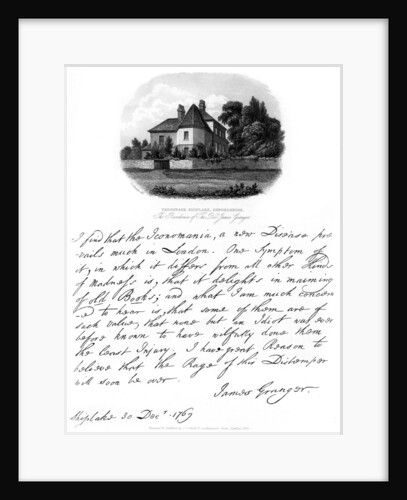 VICARAGE, SHIPLAKE, OXFORDSHIRE.
The Residence of The Revd. James Granger.
I find that the Iconomania, a new Disease pre
vails much in London. One Symptom of
it, in which it differs from all other Kinds
of Madness is, that it delights in maiming
of old Books; and what I am much concern
ed to hear is, that some of them are of
such value, that none but an Idiot was ever
before known to have wilfully done them
the least Injury. I have great Reason to
believe that the Rage of this Distemper
will soon be over.
James Granger.
Shiplake 30 Decr. 1769